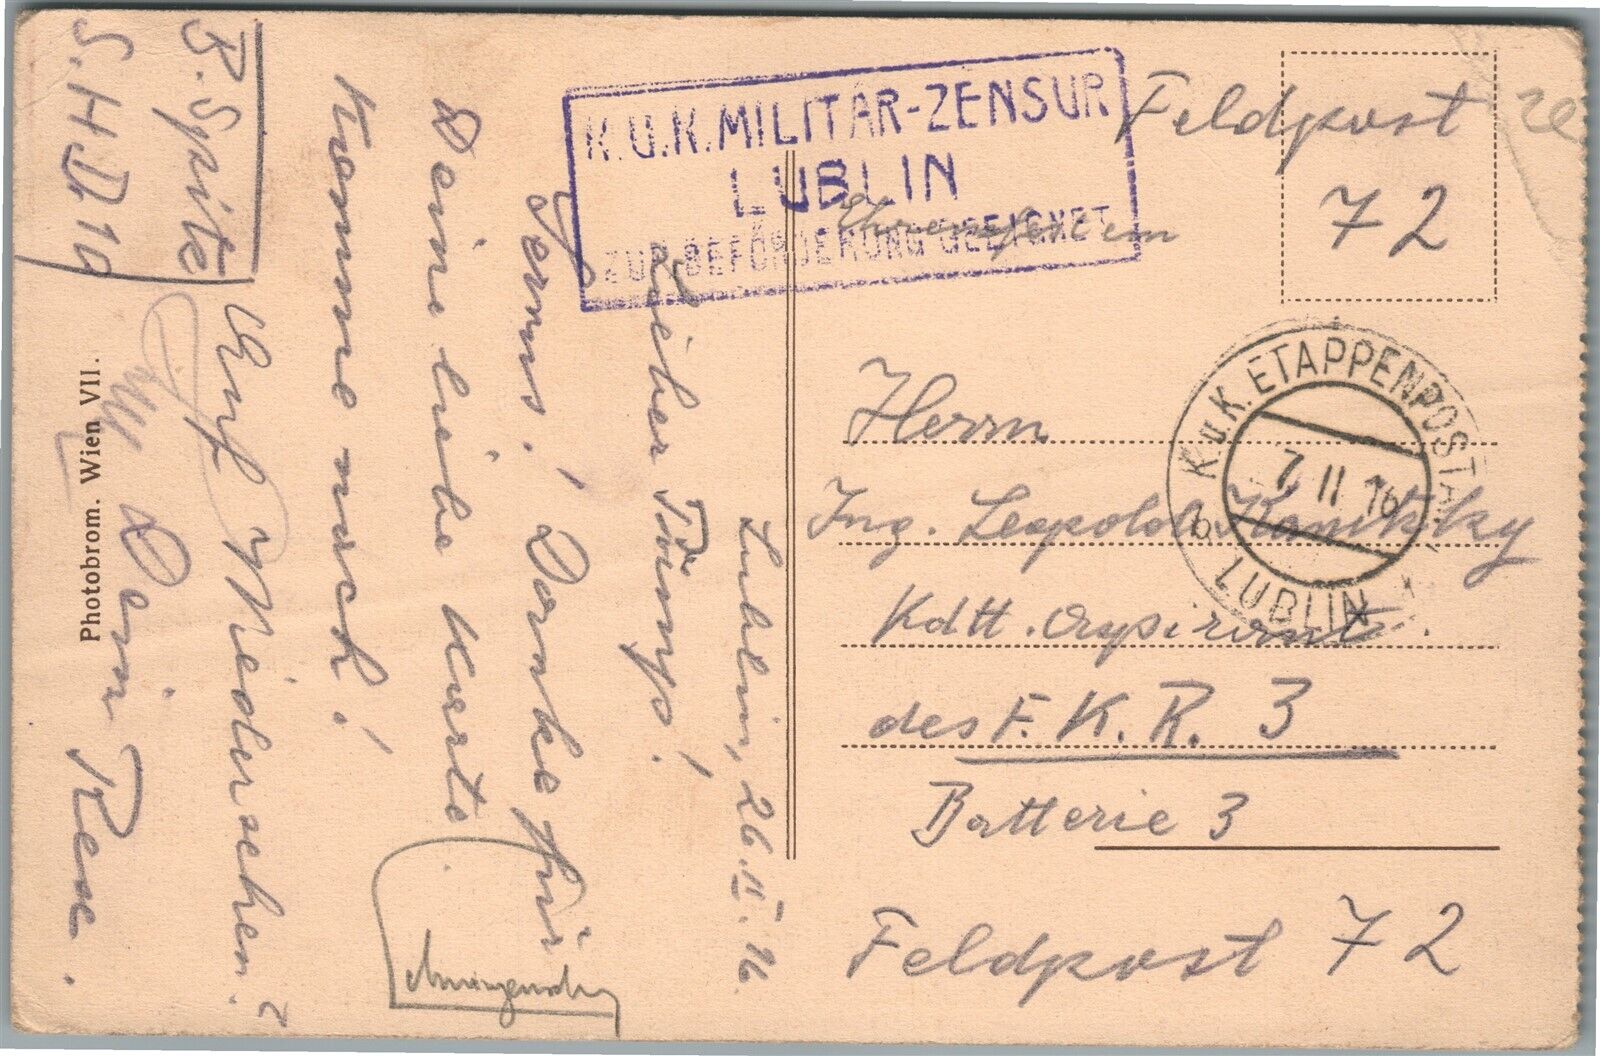 K.U.K. MILITÄR-ZENSUR
LUBLIN
ZUR BEFÖRDERUNG GEEIGNET
Feldpost
72
K.u.K. ETAPPENPOSTAMT
7. II 16
b
LUBLIN
Herrn
Ing. Leopold Kanitzky
Kdtt. Aspirant
des F. K. R. 3
Batterie 3
Feldpost 72
Lublin, 26. II. 16.
Lieber
Servus! Danke für
Deine liebe Karte.
Komme nach!
Auf Wiedersehen!
Dein Rex.
Photobrom. Wien VII.